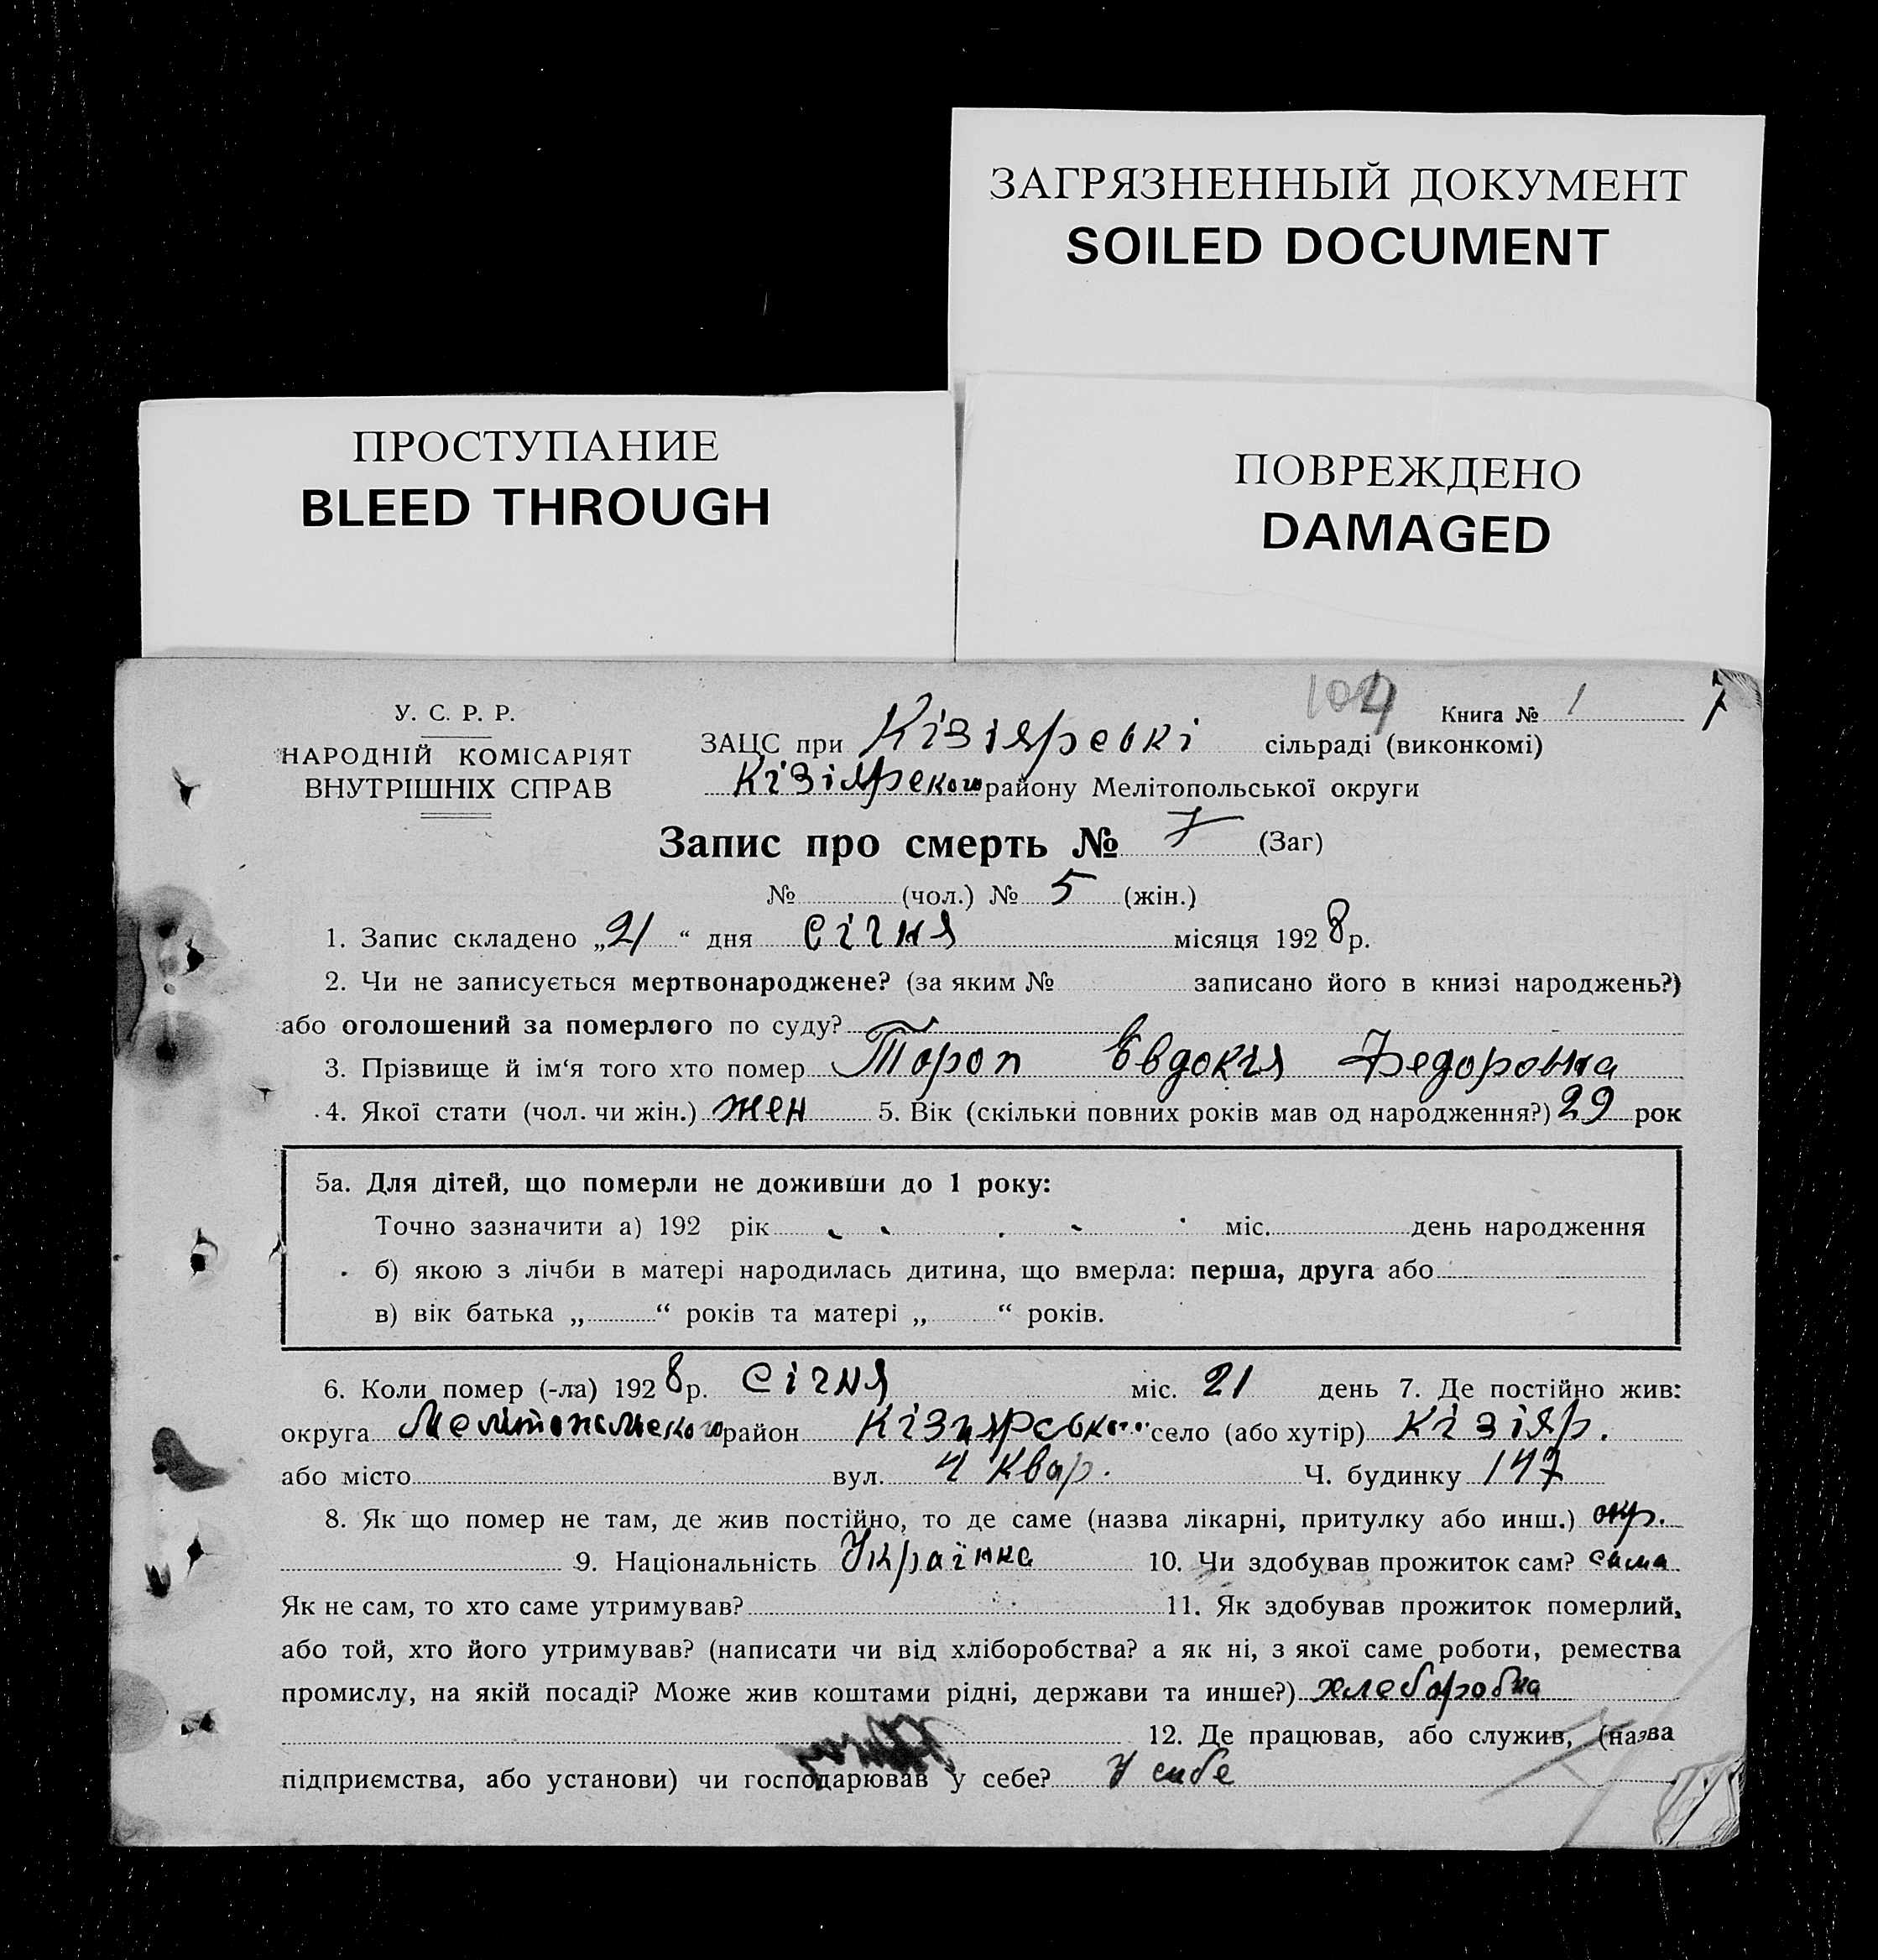 ЗАГРЯЗНЕННЫЙ ДОКУМЕНТ
SOILED DOCUMENT
ПРОСТУПАНИЕ
BLEED THROUGH
ПОВРЕЖДЕНО
DAMAGED
104 Книга № 1 7
У. С. Р. Р.
НАРОДНІЙ КОМІСАРІЯТ
ВНУТРІШНІХ СПРАВ
ЗАЦС при Кізіярські сільраді (виконкомі)
Кізіярского району Мелітопольської округи
Запис про смерть № 7 (Заг)
№ (чол.) № 5 (жін.)
1. Запис складено „21“ дня Січня місяця 1928 р.
2. Чи не записується мертвонароджене? (за яким № записано його в книзі народжень?)
або оголошений за померлого по суду?
3. Прізвище й ім‘я того хто помер Тороп Евдокія Федоровна
4. Якої стати (чол. чи жін.) жен 5. Вік (скільки повних років мав од народження?) 29 рок
5а. Для дітей, що померли не доживши до 1 року:
Точно зазначити а) 192 рік міс. день народження
б) якою з лічби в матері народилась дитина, що вмерла: перша, друга або
в) вік батька „ “ років та матері „ “ років.
6. Коли помер (-ла) 1928 р. Січня міс. 21 день 7. Де постійно жив:
округа Мелітопольского район Кізиярського село (або хутір) Кізіяр.
або місто вул. 4 Квар. Ч. будинку 147
8. Як що помер не там, де жив постійно, то де саме (назва лікарні, притулку або инш.)
9. Національність Українка 10. Чи здобував прожиток сам? сама
Як не сам, то хто саме утримував? 11. Як здобував прожиток померлий,
або той, хто його утримував? (написати чи від хліборобства? а як ні, з якої саме роботи, ремества
промислу, на якій посаді? Може жив коштами рідні, держави та инше?) хлеборобка
12. Де працював, або служив, (назва
підприємства, або установи) чи господарював у себе? У сибе